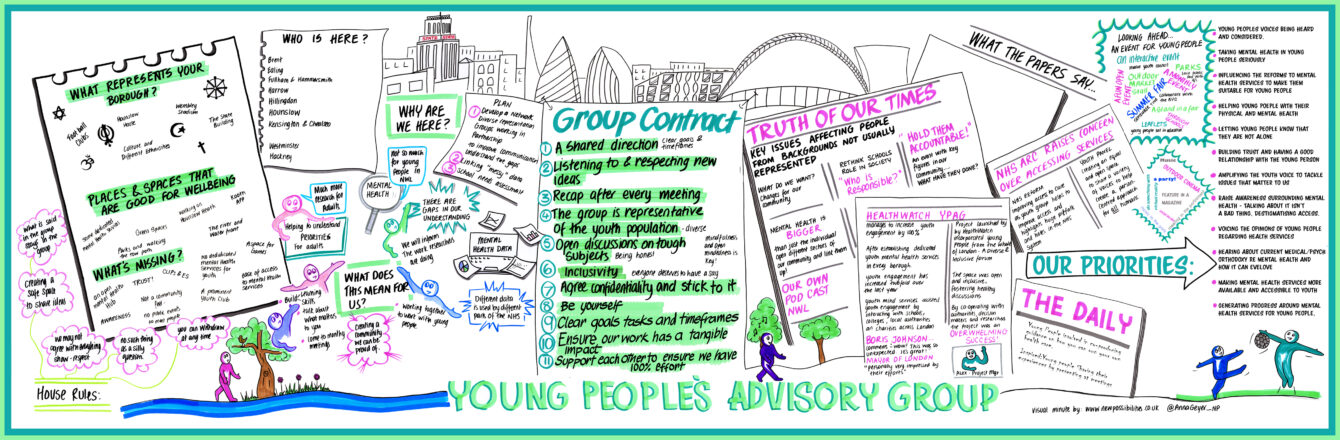 WHAT REPRESENTS YOUR
BOROUGH?
football
clubs
Hounslow
House
Wembley
Stadium
The State
Building
Culture and
Different Ethnicities
PLACES & SPACES THAT
ARE GOOD FOR WELLBEING
Green Spaces
Parks and walking
the tow path
The river and
water front
WHAT'S MISSING?
An open
mental health
Hub
TRUST!
CLIPPERS
Not a community
feel
AWARENESS
no dedicated
mental health
services for
youth
A prominent
Youth Club
A space for
Games
ease of access
to mental health
services
What is said
in the group
stays in the
group
Creating a
Safe space
to share ideas
we may not
agree with everything
shown - respect
no such thing
as a silly
question.
you can withdraw
at any time
House Rules:
WHO IS HERE?
Brent
Ealing
Fulham & Hammersmith
Harrow
Hillingdon
Hounslow
Kensington & Chelsea
Westminster
Hackney
WHY ARE
WE HERE?
Not so much
for young
People in
NWL
MENTAL
HEALTH
Much more
research for
Adults
Helping to understand
PRIORITIES
for adults
THERE ARE
GAPS IN OUR
UNDERSTANDING
We will inform
the work researchers
are doing
MENTAL
HEALTH DATA
Different data
is used by different
parts of the NHS
WHAT DOES
THIS MEAN FOR
US?
Building
Skills
talk about
what matters
to you
come to monthly
meetings.
Creating a
community
we can be
proud of.
Working together
to work with young
people.
PLAN
1 Develop a network
Diverse representation
Groups working in
Partnership
to improve communication
understand the gaps
2 Linking
"messy" data
3 School needs assessment
STATE
Group Contract
1 A shared direction clear goals &
timeframes
2 Listening to & respecting new
ideas
3 Recap after every meeting
4 The group is representative
of the youth population - diverse
5 Open discussions on tough
Subjects Being honest!
mindfulness
and open
mindedness is
key!
6 Inclusivity everyone deserves to have a say
7 Agree confidentiality and stick to it
8 Be yourself
9 Clear goals tasks and timeframes
10 Ensure our work has a tangible
impact
11 Support each other to ensure we have
100% effort
YOUNG PEOPLE'S ADVISORY GROUP
TRUTH OF OUR TIMES
KEY ISSUES AFFECTING PEOPLE
FROM BACKGROUNDS NOT USUALLY
REPRESENTED
WHAT DO WE WANT?
Changes for
our
community
RETHINK SCHOOLS
ROLE IN SOCIETY
"WHO IS
RESPONSIBLE?"
"HOLD THEM
ACCOUNTABLE!"
an event with key
figures in our
community.
WHAT HAVE THEY DONE?
MENTAL HEALTH IS
BIGGER
than just the individual
open different sectors of
our community and link them
up
OUR OWN
POD CAST
NWL
HEALTHWATCH YPAG
manages to increase youth
engagement by 100%
After establishing dedicated
youth mental health services
in every borough
youth engagement has
increased tenfold over
the last year
Youth mind services assisted
youth engagement by
interacting with schools,
colleges, local authorities
and charities across London
BORIS JOHNSON
comments - "Wow! This was so
unexpected it's great!"
MAYOR OF LONDON
"personally very impressed by
their efforts"
Project launched
by HealthWatch
unexpected young
People from the whole
of London - A diverse &
inclusive forum
The space was open
and inclusive,
fostering healthy
discussions
By co-operating with
authorities, decision
makers and researchers
the Project was an
OVERWHELMING
SUCCESS!
Alex - Project Mgr
WHAT THE PAPERS SAY...
NHS ARC RAISES CONCERN
OVER ACCESSING SERVICES
NHS REFORM
improving access to care
as youth group helps
improve access and
highlights huge pitfalls
and holes in the
system
youth parks
creating an equal
and open space
to share a variety
of voices to help
create a person
centered approach
for all humans
LOOKING AHEAD...
AN EVENT FOR YOUNG PEOPLE
an interactive event
PARKS
Outdoor
MARKET
A FUN DAY
EVENT
SUMMER FAIR
A COMMUNITY
EVENT
A stand in a fair
LEAFLETS
OUTDOOR CINEMA
a party!
FEATURE IN A
MAGAZINE
OUR PRIORITIES:
YOUNG PEOPLES VOICES BEING HEARD
AND CONSIDERED.
TAKING MENTAL HEALTH IN YOUNG
PEOPLE SERIOUSLY
INFLUENCING THE REFORMS TO MENTAL
HEALTH SERVICES TO MAKE THEM
SUITABLE FOR YOUNG PEOPLE
HELPING YOUNG POEPLE WITH THEIR
PHYSICAL AND MENTAL HEALTH
LETTING YOUNG PEOPLE KNOW THAT
THEY ARE NOT ALONE
BUILDING TRUST AND HAVING A GOOD
RELATIONSHIP WITH THE YOUNG PERSON
AMPLIFYING THE YOUTH VOICE TO TACKLE
ISSUES THAT MATTER TO US
RAISE AWARENESS SURROUNDING MENTAL
HEALTH - TALKING ABOUT IT ISN'T
A BAD THING. DESTIGMATISING ACCESS.
VOICING THE OPINIONS OF YOUNG PEOPLE
REGARDING HEALTH SERVICES
HEARING ABOUT CURRENT MEDICAL/PSYCH
ORTHODOXY RE MENTAL HEALTH AND
HOW IT CAN EVELOVE
MAKING MENTAL HEALTH SERVICES MORE
AVAILABLE AND ACCESSIBLE TO YOUTH
GENERATING PROGRESS AROUND MENTAL
HEALTH SERVICES FOR YOUNG PEOPLE.
THE DAILY
visual minute by: www.newpossibilities.co.uk @AnnaGeyer_NP